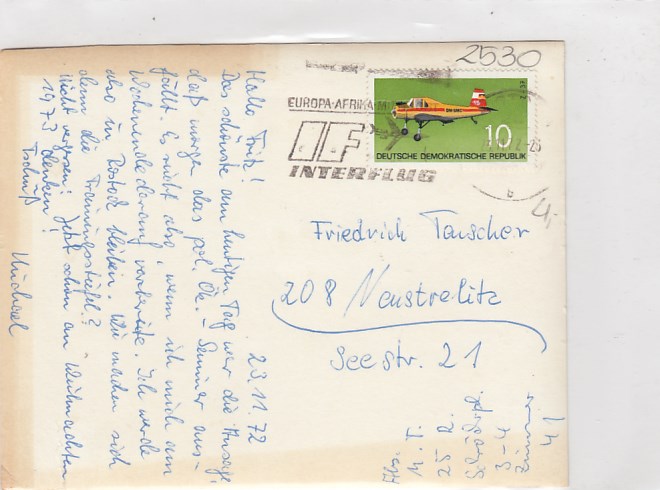 2530
EUROPA·AFRIKA·
IF
INTERFLUG
10
DEUTSCHE DEMOKRATISCHE REPUBLIK
23.11.72
Hallo Fritz!
Das schönste am heutigen Tag war die Ansage,
daß morgen das pol. Ök. - Seminar aus-
fällt. Es nicht also, wenn ich mich am
Wochenende darauf vorbereite. Ich werde
also in Rostock bleiben. Wie machen sich
denn die Trainingsstiefel?
Nicht vergessen: Jetzt schon an Weihnachten
1973 denken!
Tschüß
Michael
Friedrich Tauscher
208 Neustrelitz
Seestr. 21
4,-
25 R.
3-4
Zimmer